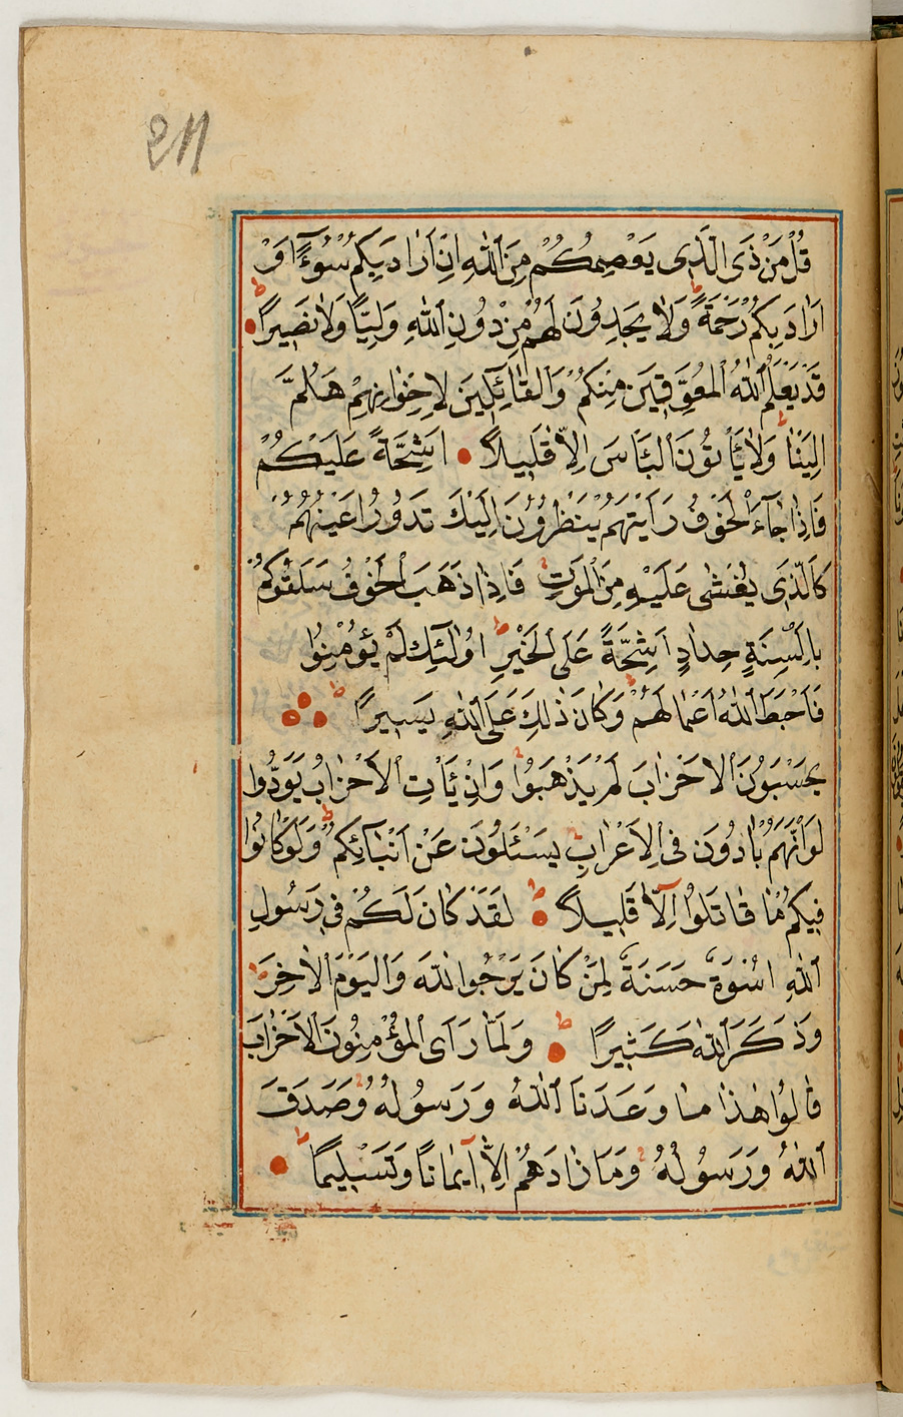 211
قُلْ مَنْ ذَى الَّذِى يَعْصِمُكُمْ مِنَ اللّٰهِ اِنْ اَرَادَ بِكُمْ سُوءً اَوْ
اَرَادَ بِكُمْ رَحْمَةً وَلَا يَجِدُونَ لَهُمْ مِنْ دُونِ اللّٰهِ وَلِيًّا وَلَا نَصِيرًا
قَدْ يَعْلَمُ اللّٰهُ الْمُعَوِّقِينَ مِنْكُمْ وَالْقَائِلِينَ لِاِخْوَانِهِمْ هَلُمَّ
اِلَيْنَا وَلَا يَأْتُونَ الْبَأْسَ اِلَّا قَلِيلًا اَشِحَّةً عَلَيْكُمْ
فَاِذَا جَاءَ الْخَوْفُ رَاَيْتَهُمْ يَنْظُرُونَ اِلَيْكَ تَدُورُ اَعْيُنُهُمْ
كَالَّذِى يُغْشٰى عَلَيْهِ مِنَ الْمَوْتِ فَاِذَا ذَهَبَ الْخَوْفُ سَلَقُوكُمْ
بِاَلْسِنَةٍ حِدَادٍ اَشِحَّةً عَلَى الْخَيْرِ اُولٰئِكَ لَمْ يُؤْمِنُوا
فَاَحْبَطَ اللّٰهُ اَعْمَالَهُمْ وَكَانَ ذٰلِكَ عَلَى اللّٰهِ يَسِيرًا
يَحْسَبُونَ الْاَحْزَابَ لَمْ يَذْهَبُوا وَاِنْ يَأْتِ الْاَحْزَابُ يَوَدُّوا
لَوْ اَنَّهُمْ بَادُونَ فِى الْاَعْرَابِ يَسْئَلُونَ عَنْ اَنْبَائِكُمْ وَلَوْ كَانُوا
فِيكُمْ مَا قَاتَلُوا اِلَّا قَلِيلًا لَقَدْ كَانَ لَكُمْ فِى رَسُولِ
اللّٰهِ اُسْوَةٌ حَسَنَةٌ لِمَنْ كَانَ يَرْجُوا اللّٰهَ وَالْيَوْمَ الْاٰخِرَ
وَذَكَرَ اللّٰهَ كَثِيرًا وَلَمَّا رَاَى الْمُؤْمِنُونَ الْاَحْزَابَ
قَالُوا هٰذَا مَا وَعَدَنَا اللّٰهُ وَرَسُولُهُ وَصَدَقَ
اللّٰهُ وَرَسُولُهُ وَمَا زَادَهُمْ اِلَّا اِيمَانًا وَتَسْلِيمًا